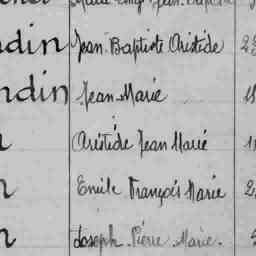 din Jean-Baptiste Aristide
ndin Jean Marie
Aristide Jean Marie
Emile François Marie
Joseph Pierre Marie.